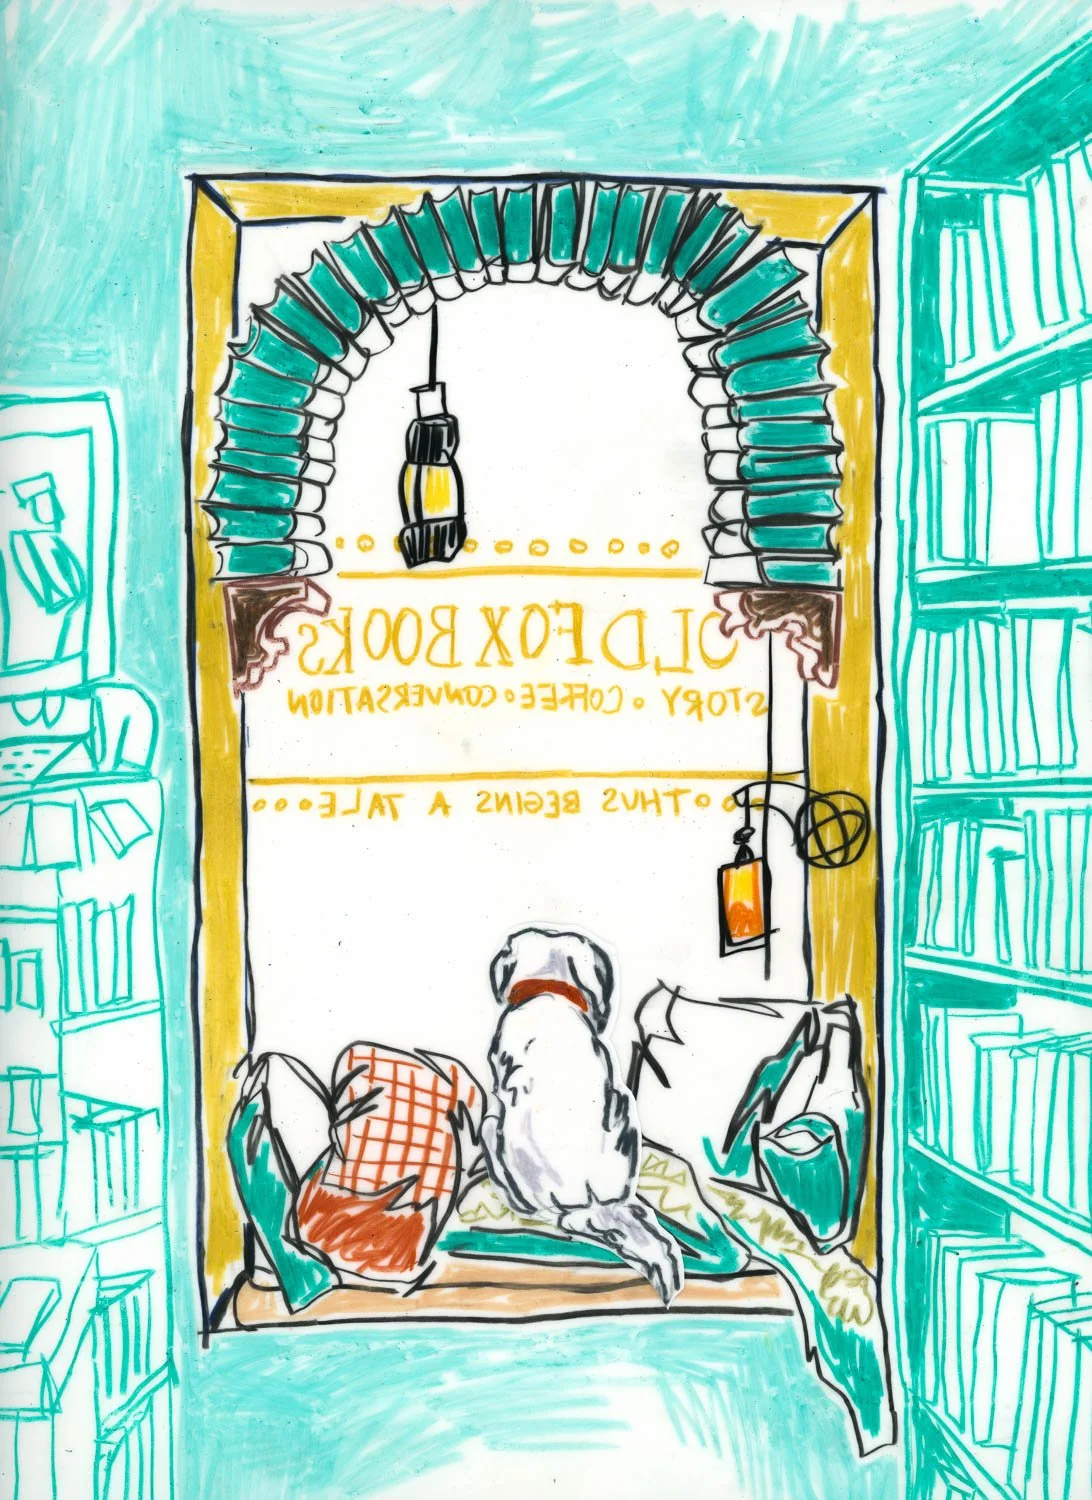 OLD FOX BOOKS
STORY • COFFEE • CONVERSATION
THUS BEGINS A TALE...